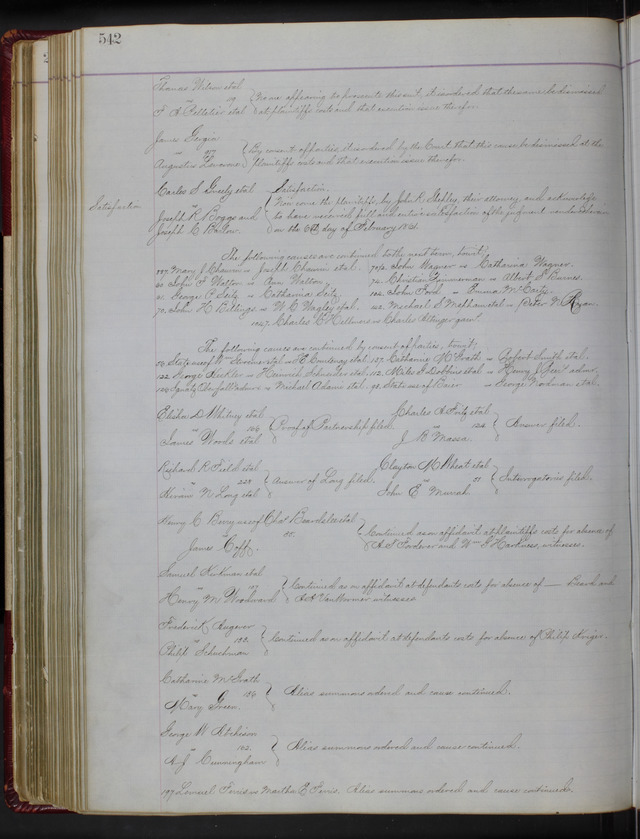 542
Thomas Wilson et al
vs 19 { No one appearing to prosecute this suit, it is ordered that the same be dismissed
F. A. Pelletier et al } at plaintiffs costs and that execution issue therefor.
James
vs { By consent of parties, it is ordered by the Court that this cause be dismissed at the
Augustus { plaintiffs costs and that execution issue therefor.
Satisfaction
Carlos S. Greely et al Satisfaction.
vs { Now come the plaintiffs, by John R. Shepley, their attorney, and acknowledge
Joseph R. Boggs and { to have received full and entire satisfaction of the judgment rendered herein
Joseph C. Barlow. { on the day of February 186
The following causes are continued to the next term, to wit:
Mary J. Chauvin vs Jos. N. Chauvin et al. John Wagner vs Catharina Wagner.
John F. Walton vs Ann Walton Christian Zimmerman vs Albert S. Barnes.
George P. Seitz vs Catharina Seitz John Ford vs Emma McCarty.
John H. Billings vs W. C. Wagley et al. Michael S. Mepham et al vs Peter N. Ryan.
Charles C. Hellmers vs Charles
The following causes are continued by consent of parties, to wit;
State use of vs Catharine McGrath vs Robert Smith et al.
122 George Kuehler vs Heinrich Schneider et al. 112. Miles S. Hopkins et al vs Henry J. admr.
Ignatz admr vs Michael Adams et al. State use of Brier vs George Workman et al.
Elisha D. Whitney et al Charles A. Fritz et al
vs 126 { Proof of Partnership filed. vs 124 { Answer filed.
James Woods et al J. B. Massa.
Richard R. Field et al Clayton M. Wheat et al
vs 223 { Answer of Long filed. vs 71 { Interrogatories filed.
Hiram N. Long et al John E. Murrah
Henry C. Berry use of Chas Beardslee et al
vs 85. { Continued as on affidavit at plaintiffs costs for absence of
James Goff. { A. S. and Wm. G. Harkness, witnesses.
Samuel Kirkman et al
vs { Continued as on affidavit at defendants costs for absence of — Beard and
Henry M. Woodward { A. A. Van Wormer witnesses
Frederick Angerer
vs 192. { Continued as on affidavit at defendants costs for absence of Philip
Philip Schuchman
Catharine McGrath
vs 186 { Alias summons ordered and cause continued.
Mary Green.
George W. Atchison
vs 192. { Alias summons ordered and cause continued.
A. J. Cunningham
197 Lemuel Ferris vs Martha E. Ferris. Alias summons ordered and cause continued.